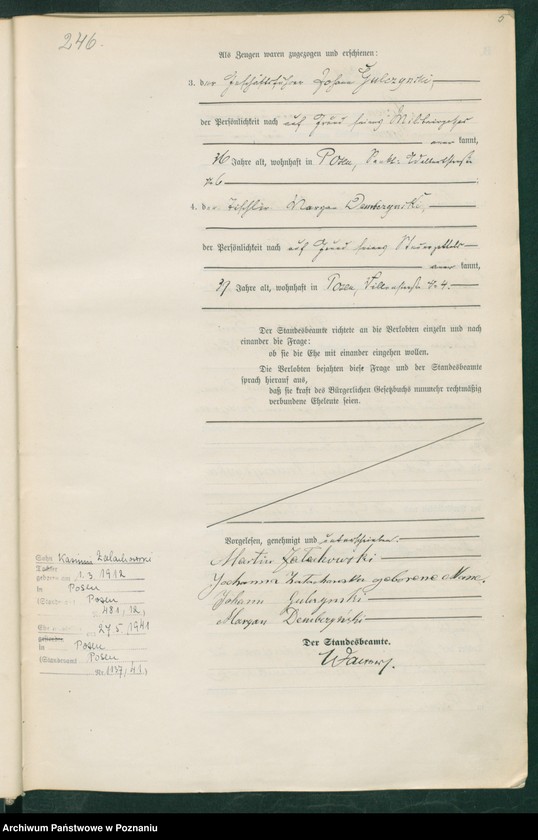 246.
5
Als Zeugen waren zugezogen und erschienen:
3. der Geschäftsführer Johann Gulczynski,
der Persönlichkeit nach auf Grund seines
kannt,
36 Jahre alt, wohnhaft in Posen,
4. der Tischler Margan Dembczynski,
der Persönlichkeit nach auf Grund seines Steuerzettels
kannt,
37 Jahre alt, wohnhaft in Posen, 4.
Der Standesbeamte richtete an die Verlobten einzeln und nach
einander die Frage:
ob sie die Ehe mit einander eingehen wollen.
Die Verlobten bejahten diese Frage und der Standesbeamte
sprach hierauf aus,
daß sie kraft des Bürgerlichen Gesetzbuchs nunmehr rechtmäßig
verbundene Eheleute seien.
Vorgelesen, genehmigt und unterschrieben.
Martin Zalachowski
Johanna geborene
Johann Gulczynski
Margan Dembczyński
Der Standesbeamte.
Sohn Kasimir Zalachowski
geboren am 1.3.1912
in Posen
(Standesamt Posen
481/12)
27.5.1941
in Posen
(Standesamt Posen
Nr. 1137/41)
Archiwum Państwowe w Poznaniu